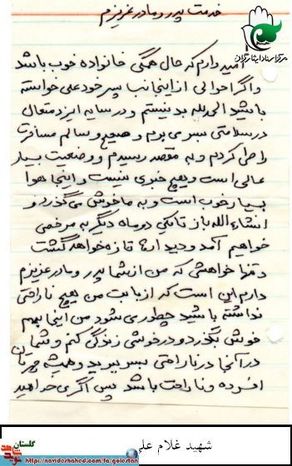 خدمت پدر و مادر عزیزم
امیدوارم که حال همگی خانواده خوب باشد
و اگر احوالی از اینجانب پسر خود علی خواسته
باشید الحمدلله بد نیستم و در سایه ایزد متعال
در سلامتی بسر می برم و صحیح و سالم مسافرت
را طی کردم و به مقصد رسیدم و وضعیت بسیار
عالی است و هیچ خبری نیست و اینجا هوا
بسیار خوب است و به ما خوش می گذرد و
انشاءالله باز تا یکی دو ماه دیگر به مرخصی
خواهیم آمد و دیدارها تازه خواهد گشت
و تنها خواهشی که من از شما پدر و مادر عزیزم
دارم این است که از بابت من هیچ ناراحتی
نداشته باشید چطور می شود من اینجا بهم
خوش بگذرد و در خوشی زندگی کنم و شما
در آنجا در ناراحتی بسر ببرید و همیشه
افسرده و ناراحت باشد پس اگر می خواهید
شهید غلام علی
گلستان
http://navideshahed.com/fa/golestan